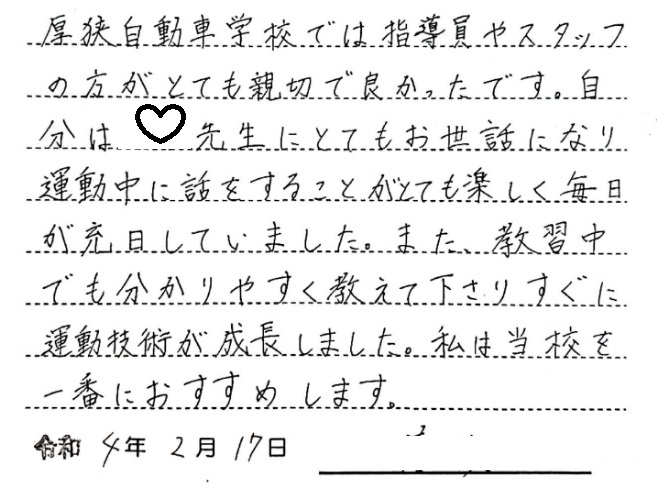 厚狭自動車学校では指導員やスタッフ
の方がとても親切で良かったです。自
分は 先生にとてもお世話になり
運動中に話をすることがとても楽しく毎日
が充日していました。また、教習中
でも分かりやすく教えて下さりすぐに
運動技術が成長しました。私は当校を
一番におすすめします。
令和 4年 2月 17日